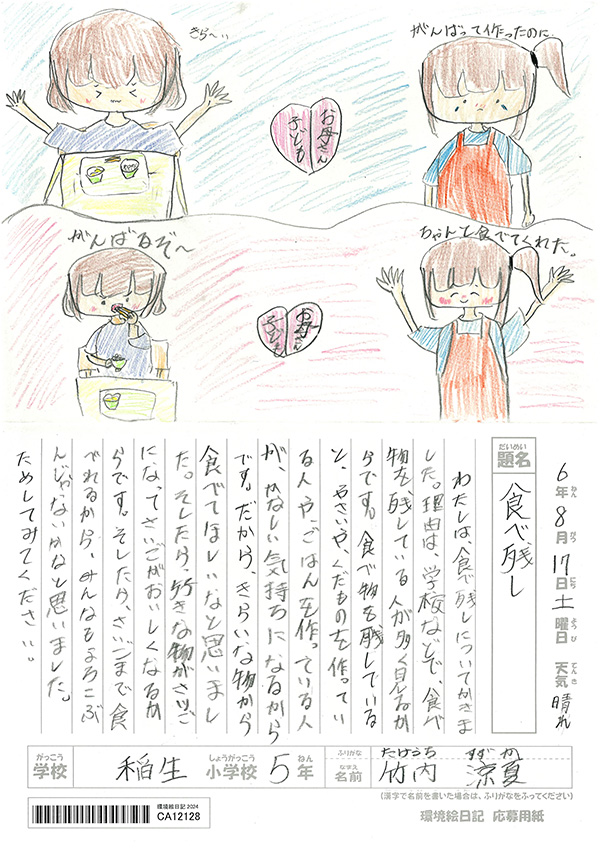 きら〜い
がんばって作ったのに
お母さん
子ども
がんばるぞ〜
ちゃんと食べてくれた。
お母さん
子ども
6年8月17日土曜日 天気晴れ
ねん がつ にち ようび てんき
だいめい
題名 食べ残し
わたしは、食べ残しについてかきま
した。理由は、学校などで、食べ
物を、残している人が多く見るか
らです。食べ物を残している
と、やさいや、くだものを作ってい
る人や、ごはんを作っている人
が、かなしい気持ちになるから
です。だから、きらいな物から
食べてほしいなと思いまし
た。そしたら、好きな物がさいご
になってさいごがおいしくなるか
らです。そしたら、さいごまで食
べれるから、みんなもよろこぶ
んじゃないかなと思いました。
ためしてみてください。
がっこう しょうがっこう ねん
学校 稲生 小学校 5年
ふりがな たけうち すずか
なまえ
名前 竹内 涼夏
(漢字で名前を書いた場合は、ふりがなをふってください)
環境絵日記 2024
CA12128
環境絵日記 応募用紙